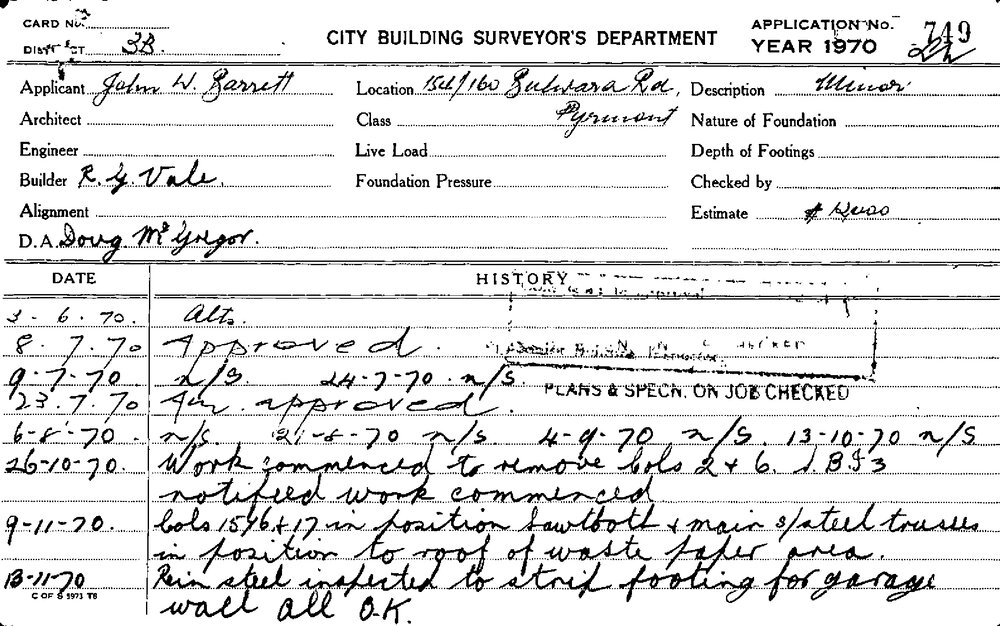 CARD No.
DISTRICT 3B.
CITY BUILDING SURVEYOR'S DEPARTMENT
APPLICATION No. 749
YEAR 1970 22
Applicant John W. Barrett
Location 154/160 Bulwara Rd, Pyrmont
Description Minor
Architect
Class
Nature of Foundation
Engineer
Live Load
Depth of Footings
Builder R. G. Vale.
Foundation Pressure
Checked by
Alignment
Estimate
D.A. Doug McGregor.
DATE HISTORY
3. 6. 70. Alts.
8. 7. 70 Approved.
9-7-70 n/s. 24-7-70. n/s.
PLANS & SPECN. ON JOB CHECKED
23. 7. 70 approved.
6-8-70. n/s. 21-8-70 n/s. 4-9-70 n/s. 13-10-70 n/s
26-10-70. Work commenced to remove cols 2 & 6.
notifeed work commenced
9-11-70. cols in position Sawtooth & main s/steel trusses
in position to roof of waste paper area.
13-11-70 Rein steel inspected to strip footing for garage
wall all O.K.
C OF S 5973 T8